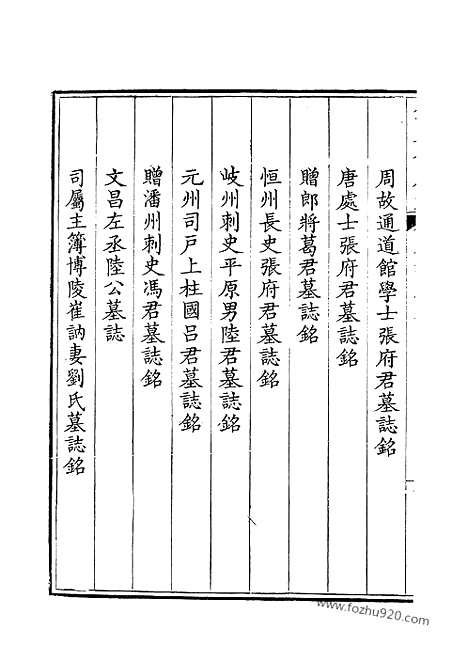 周故通道館學士張府君墓誌銘
唐處士張府君墓誌銘
贈郎將葛君墓誌銘
恒州長史張府君墓誌銘
岐州刺史平原男陸君墓誌銘
元州司戸上柱國呂君墓誌銘
贈潘州刺史馮君墓誌銘
文昌左丞陸公墓誌
司屬主簿博陵崔訥妻劉氏墓誌銘
www.fozhu920.com